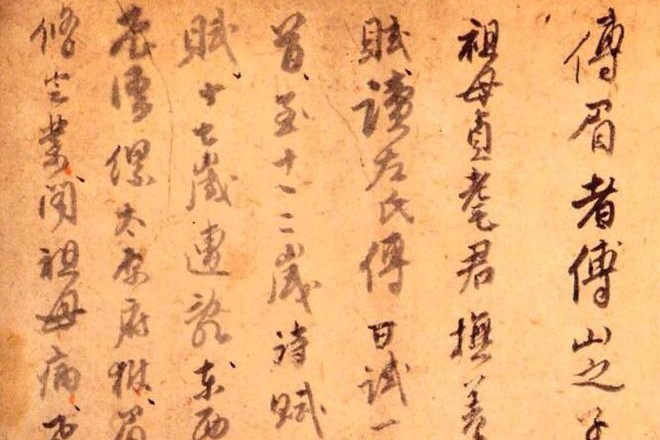 傅眉者傅山之子
祖母貞髦君撫養
賦讀左氏傳日試一
首至十一二歲詩賦
賦十七歲遭亂東西
太原府
修舉業聞祖母病